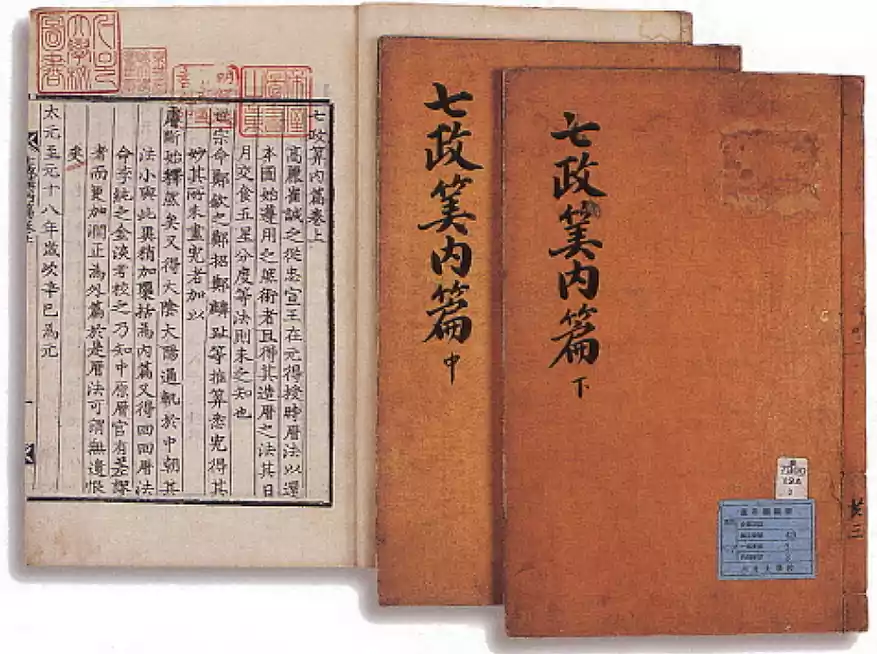 七政算内篇卷上
高麗崔誠之從忠宣王在元得授時曆法以還
本國始遵用之然術者且得其造曆之法其日
月交食五星分度等法則未之知也
世宗命鄭欽之鄭招鄭麟趾等推算悉究得其
妙其所未盡究者加以
睿斷始釋然矣又得大陰大陽通軌於中朝其
法小與此異稍加檃括為内篇又得回回曆法
命李純之金淡考校之乃知中原曆官有差謬
者而更加潤正為外篇於是曆法可謂無遺恨
矣
太元至元十八年歲次辛巳為元
大學校
圖書
七政筭内篇
中
七政筭内篇
下
共三